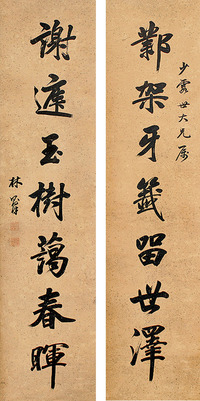 少霞世大兄属
鄴架牙籤留世澤
謝庭玉樹藹春暉
林則徐